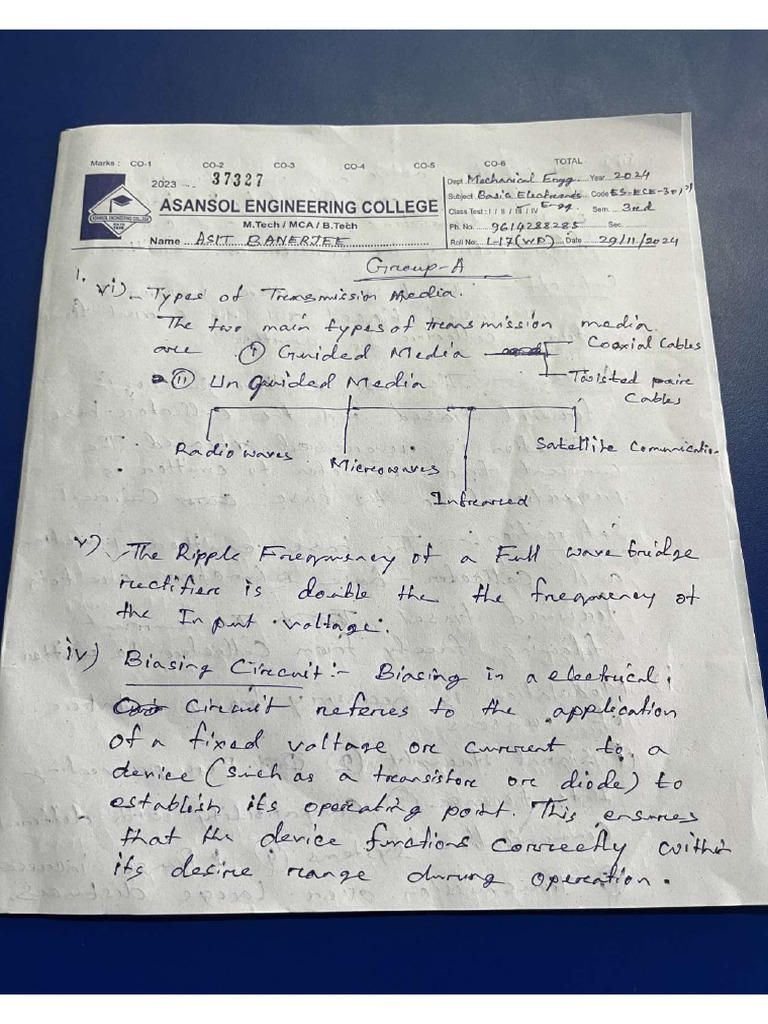 Marks : CO-1 CO-2 CO-3 CO-4 CO-5 CO-6 TOTAL
2023 .... 37327
ASANSOL ENGINEERING COLLEGE
ASANSOL ENGINEERING COLLEGE
M.Tech / MCA / B.Tech
Name ... ASIT BANERJEE
Dept. Mechanical Engg. Year 2024
Subject Basic Electronics Code ES-ECE-301
Class Test : I / II / III / IV E-gg. Sem. 3rd
Ph. No. 9614288285 Sec.
Roll No: L-17(WP) Date 29/11/2024
Group-A
1.
vi) - Types of Transmission Media.
The two main types of transmission media
are (i) Guided Media Coaxial Cables
(ii) Un Guided Media Twisted paire
Cables
Radio waves Microwaves Infrared Satellite Communication
v) The Ripple Frequency of a Full wave bridge
rectifier is double the the frequency of
the Input voltage.
iv) Biasing Circuit :- Biasing in a electrical
circuit referes to the application
of a fixed voltage or current to a
device (such as a transistore or diode) to
establish its operating point. This ensures
that the device functions correctly within
its desire range during operation.